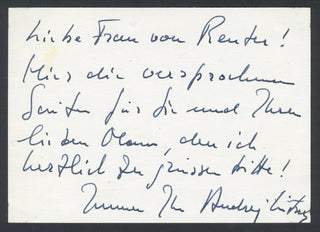 Liebe Frau von Reuter!
Hier die versprochenen
Seiten für Sie und Ihren
lieben Mann, den ich
herzlich zu grüssen bitte!
Immer Ihr Andrzej